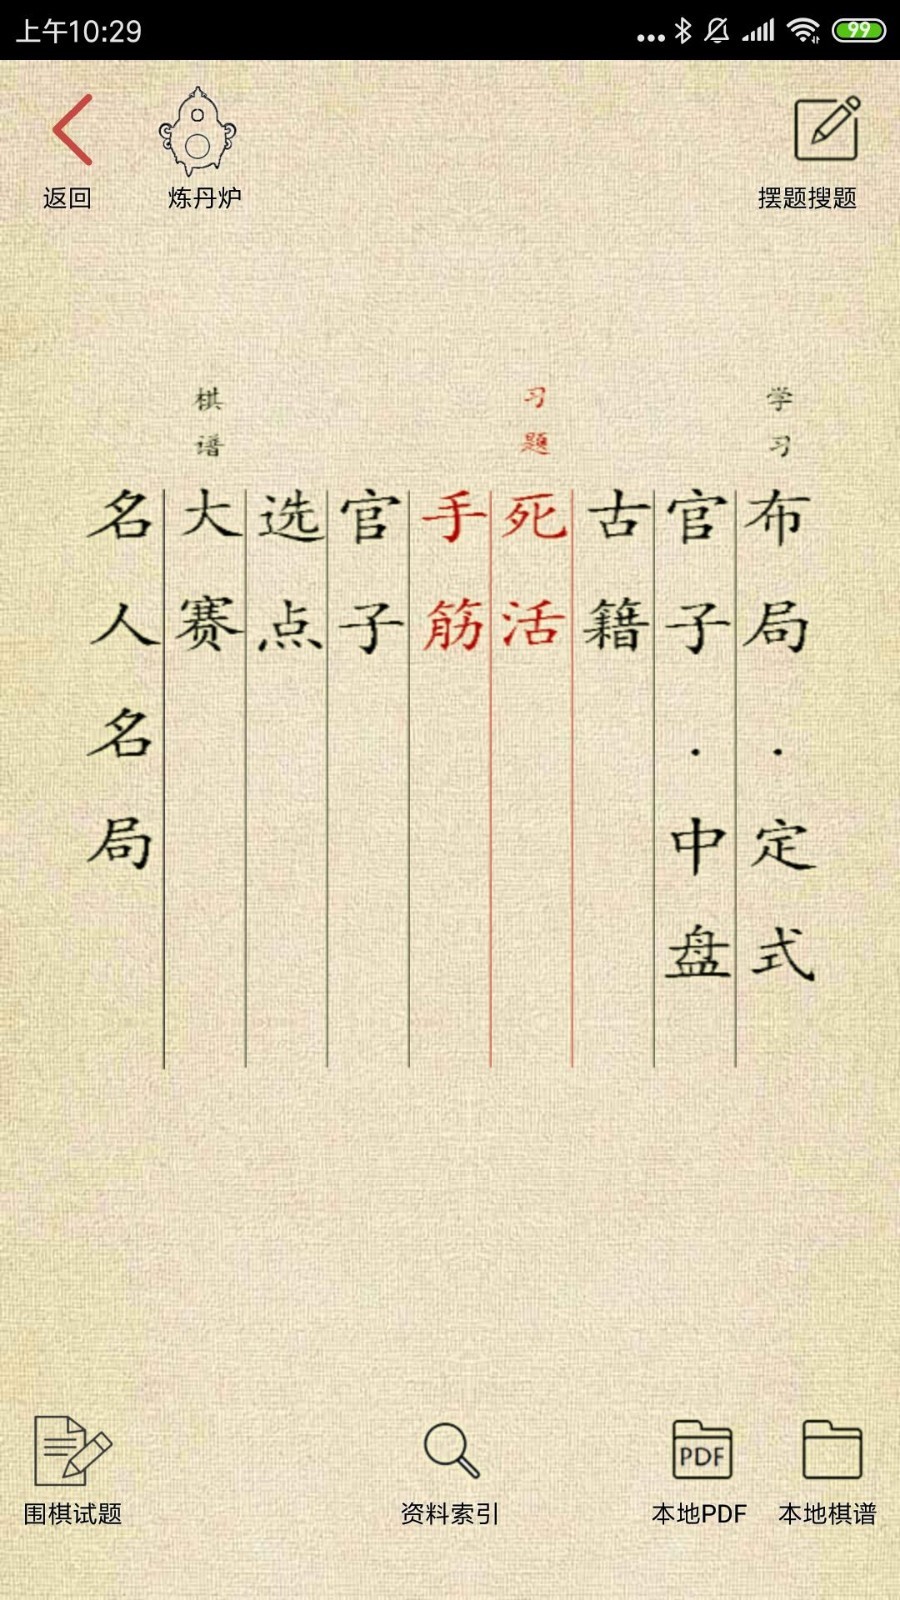 上午10:29
99
返回
炼丹炉
摆题搜题
学习
习题
棋谱
布局·定式
官子·中盘
古籍
死活
手筋
官子
选点
大赛
名人名局
围棋试题
资料索引
PDF
本地PDF
本地棋谱